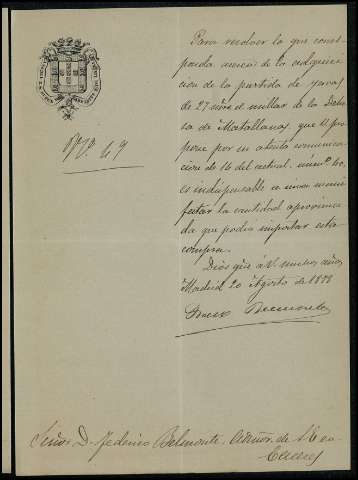 Nº 49
Para resolver lo que corres-
ponda acerca de la adquisi-
cion de la partida de
de 27 el millar de la Dehe-
sa de Matallana, que V. pro-
pone por su atenta comunica-
cion de 16 del actual, núm.º 60,
es indispensable se sirva mani-
festar la cantidad aproxima-
da que podrá importar esta
compra.
Dios gde. á V. muchos años,
Madrid 20 Agosto de 1878
Señor D. Federico Belmonte. Admor. de
Cáceres